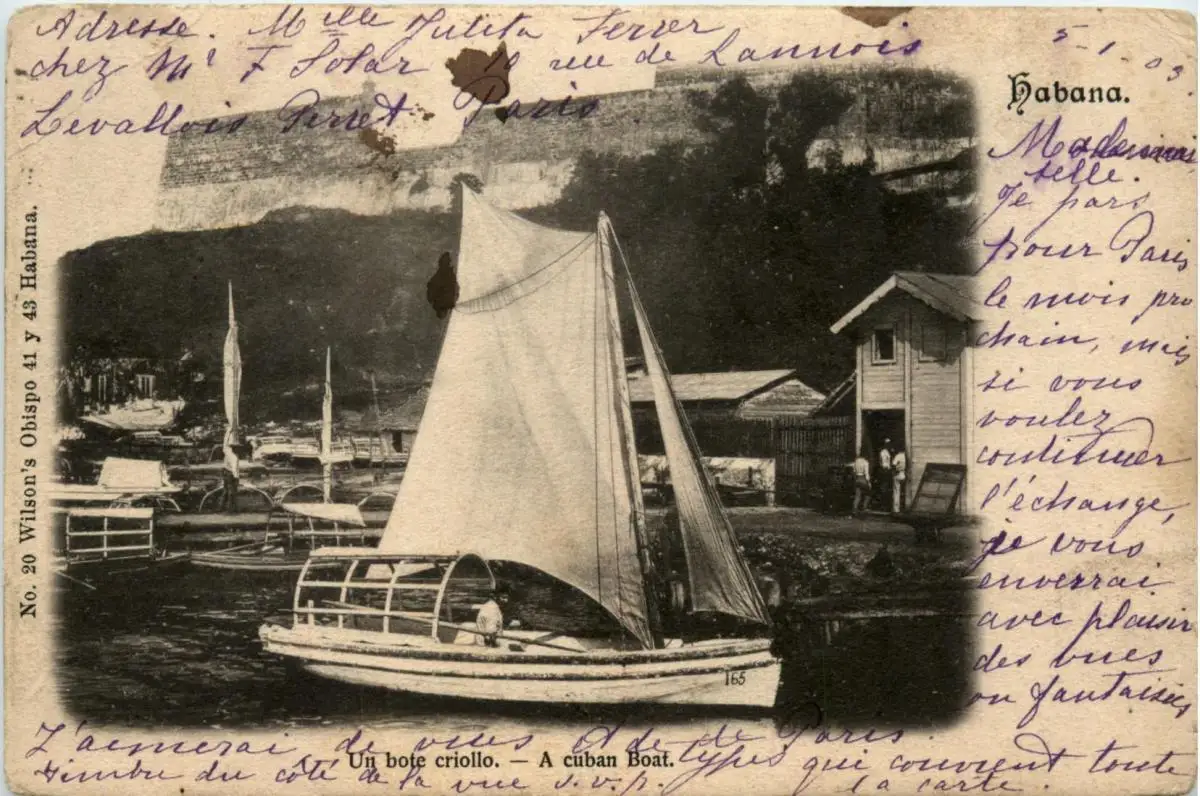 Adresse. Mlle Julita Ferrer
chez Mr F Solar 10 rue de Lannois
Levallois Perret Paris
5-1-03
Habana.
Mademoiselle.
Je pars
pour Paris
le mois pro
chain, mais
si vous
voulez
continuer
l'échange,
je vous
enverrai
avec plaisir
des vues
ou fantaisies
J'aimerai de vues et de de Paris.
types qui couvrent toute
timbre du côté de la vue s.v.p. la carte.
Un bote criollo. — A cuban Boat.
No. 20 Wilson's Obispo 41 y 43 Habana.
165